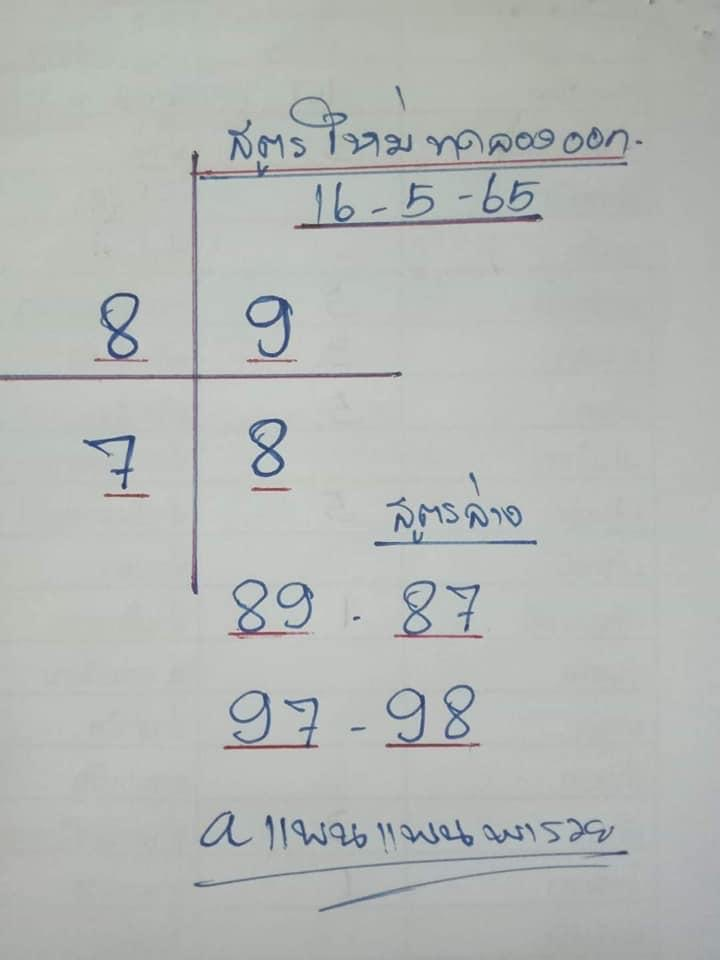 สูตรใหม่ ทดลองออก.
16-5-65
8 9
7 8
สูตรล่าง
89. 87
97-98
a แพนแพนพารวย